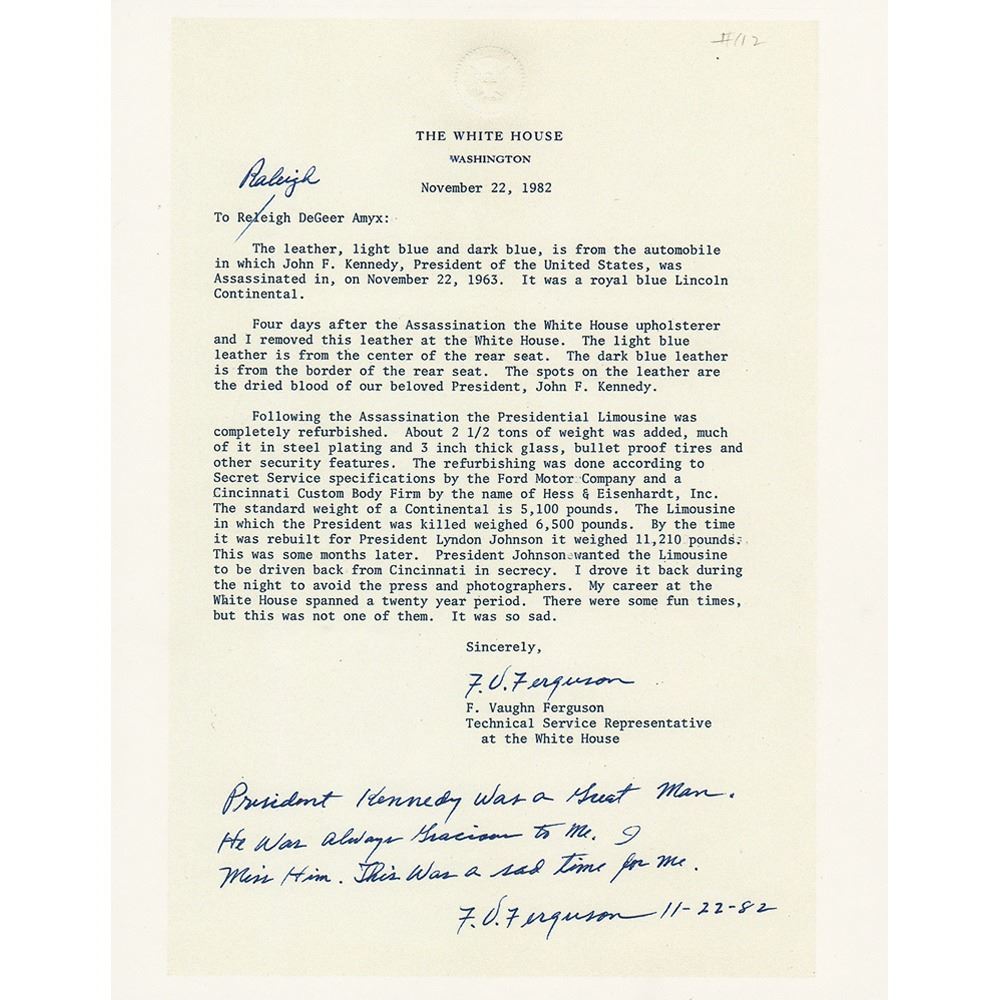 #112
THE WHITE HOUSE
WASHINGTON
November 22, 1982
Raleigh
To Releigh DeGeer Amyx:
The leather, light blue and dark blue, is from the automobile
in which John F. Kennedy, President of the United States, was
Assassinated in, on November 22, 1963. It was a royal blue Lincoln
Continental.
Four days after the Assassination the White House upholsterer
and I removed this leather at the White House. The light blue
leather is from the center of the rear seat. The dark blue leather
is from the border of the rear seat. The spots on the leather are
the dried blood of our beloved President, John F. Kennedy.
Following the Assassination the Presidential Limousine was
completely refurbished. About 2 1/2 tons of weight was added, much
of it in steel plating and 3 inch thick glass, bullet proof tires and
other security features. The refurbishing was done according to
Secret Service specifications by the Ford Motor Company and a
Cincinnati Custom Body Firm by the name of Hess & Eisenhardt, Inc.
The standard weight of a Continental is 5,100 pounds. The Limousine
in which the President was killed weighed 6,500 pounds. By the time
it was rebuilt for President Lyndon Johnson it weighed 11,210 pounds.
This was some months later. President Johnson wanted the Limousine
to be driven back from Cincinnati in secrecy. I drove it back during
the night to avoid the press and photographers. My career at the
White House spanned a twenty year period. There were some fun times,
but this was not one of them. It was so sad.
Sincerely,
F.V. Ferguson
F. Vaughn Ferguson
Technical Service Representative
at the White House
President Kennedy Was a Great Man.
He Was Always Gracious to Me. I
Miss Him. This Was a sad time for me.
F.V. Ferguson 11-22-82